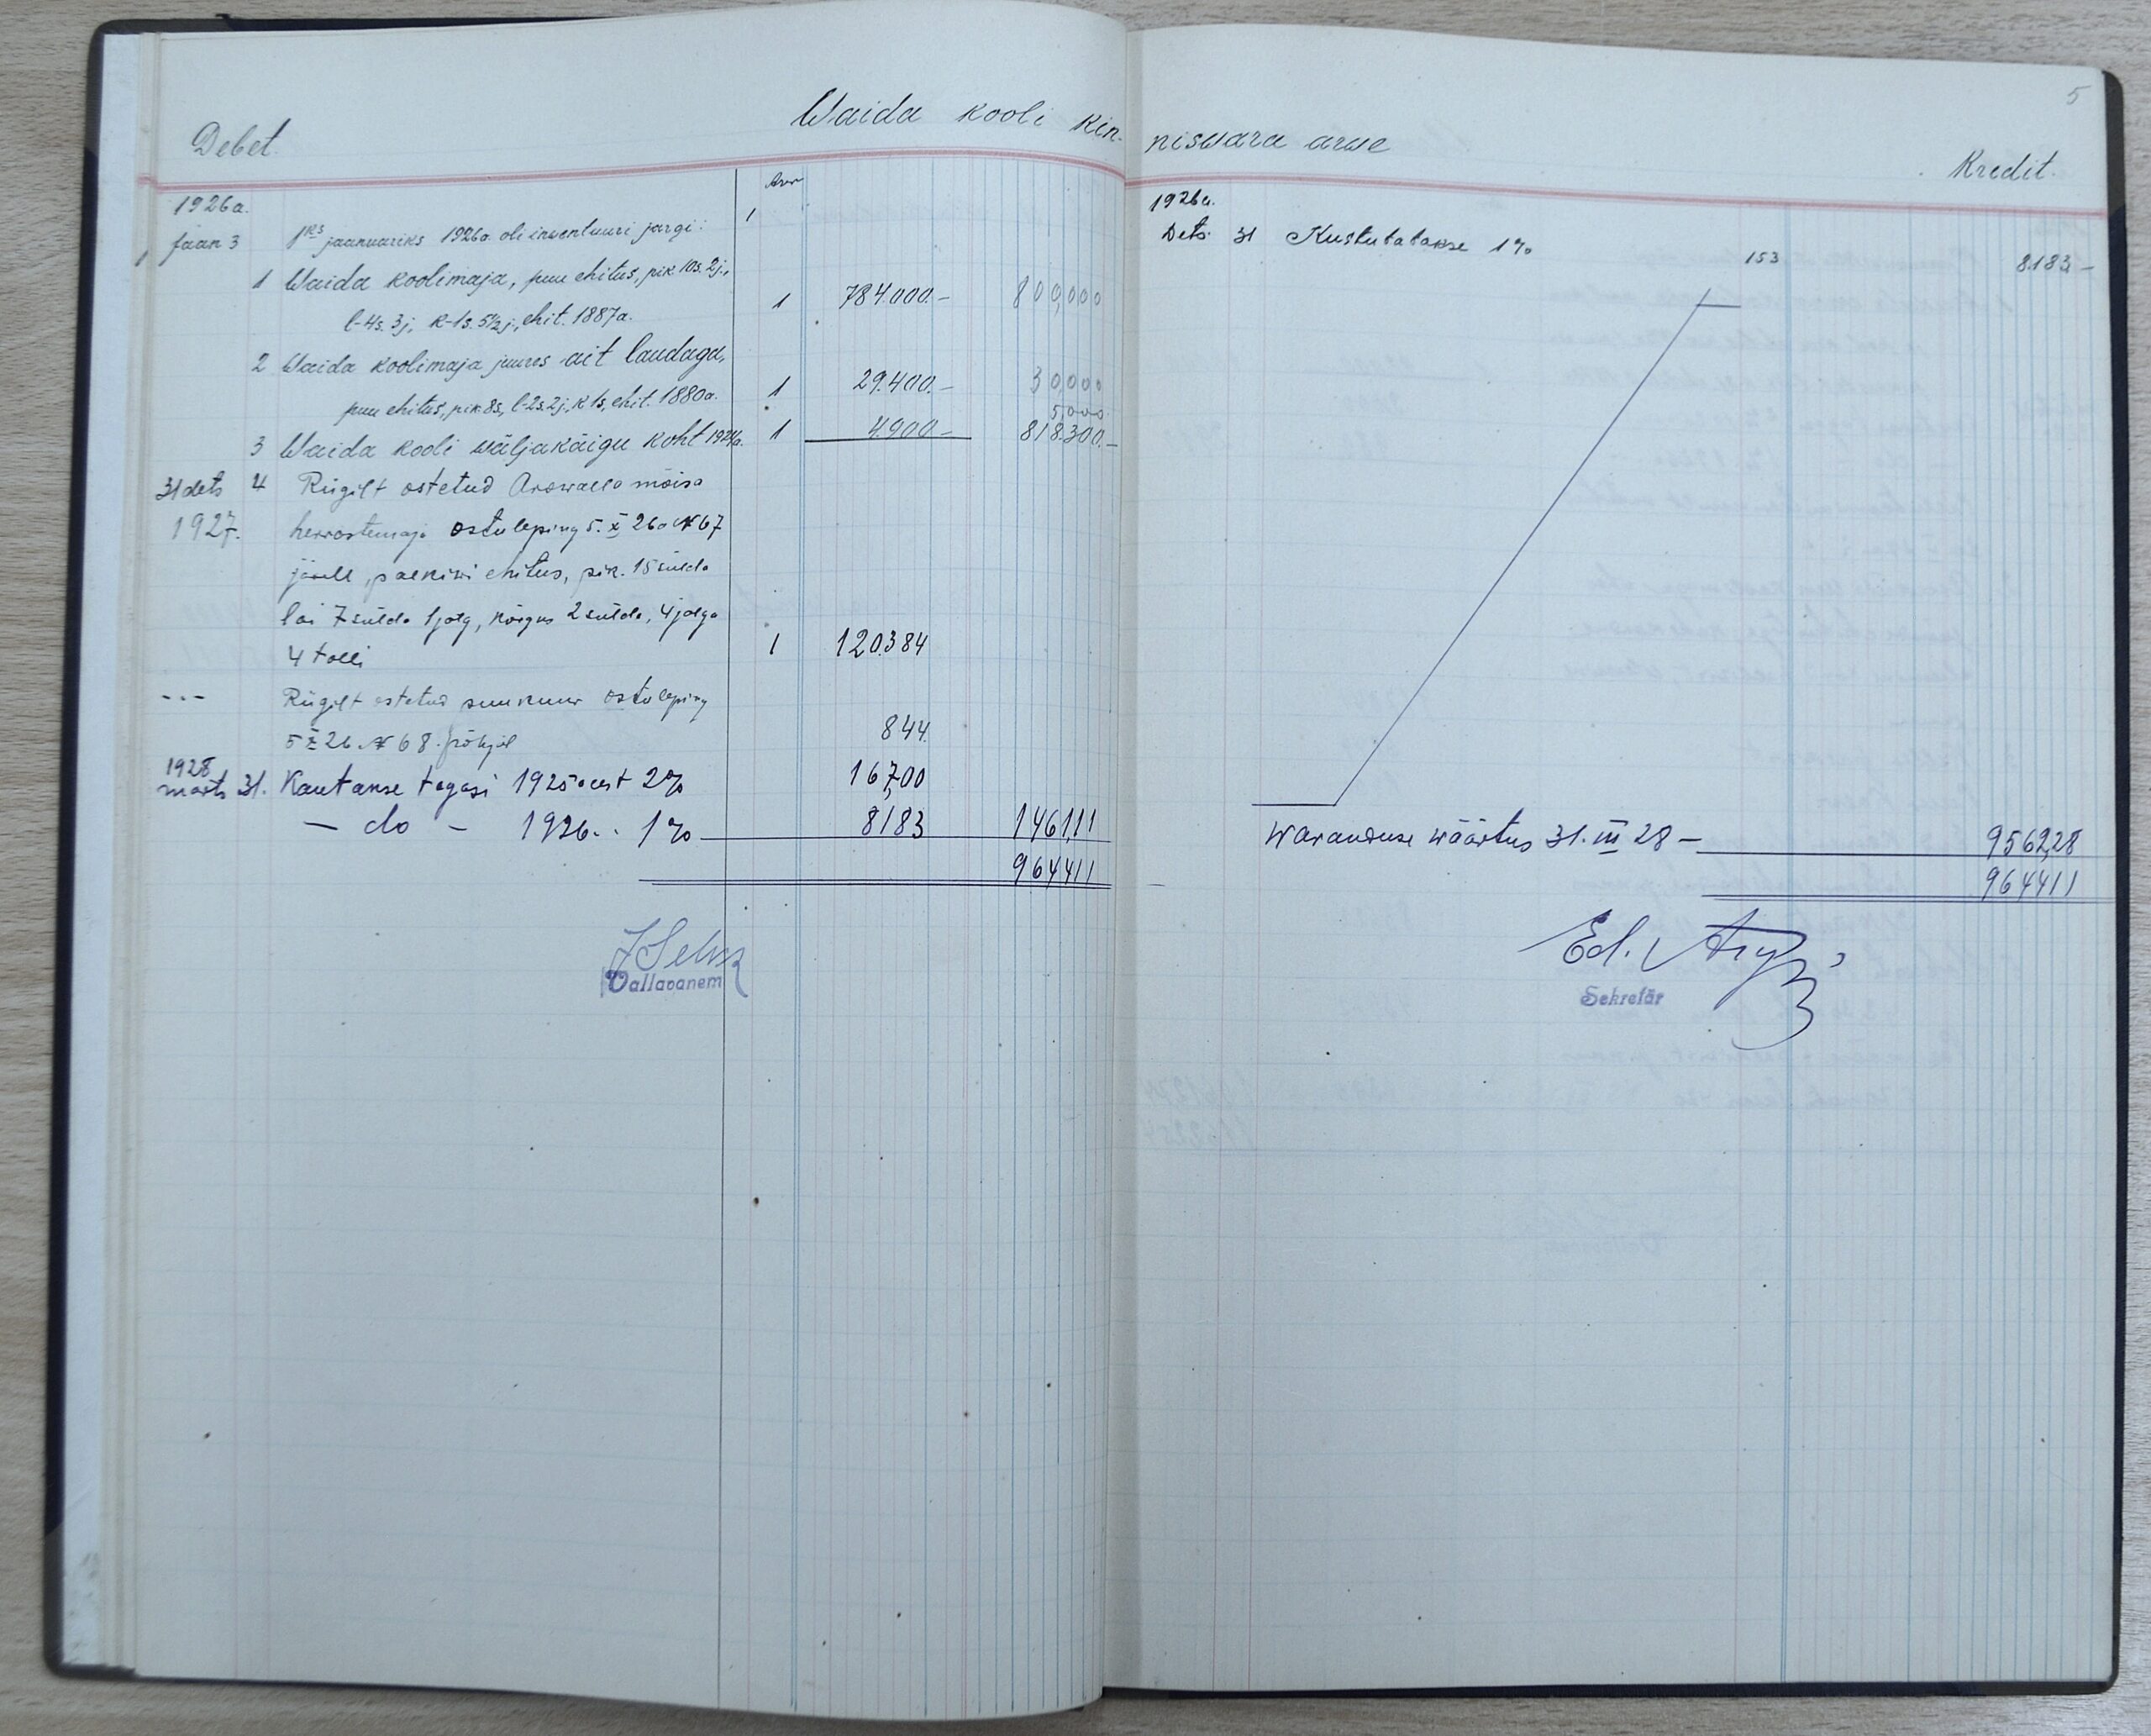 Debet.
Waida kooli kin-
Arv
1926a.
1
1 Jaan 3 1ks jaanuariks 1926a oli inwentuuri järgi:
1 Waida koolimaja, puu ehitus, pik. 10s. 2j.,
l-4s. 3j, k-1s. 5½j., ehit. 1887a. 1 784.000.- 800,000
2 Waida koolimaja juures ait laudaga,
puu ehitus, pik. 8s, l-2s. 2j., k 1s, ehit. 1880a. 1 29.400.- 30,000
5,000
3 Waida kooli wäljakäigu koht 1924a. 1 4.900- 818.300.-
31 dets 4 Riigilt ostetud Arowalla mõisa
1927. herrastemaja ostuleping 5. X 26a № 67
järele, paekiwi ehitus, pik. 15 sülda
lai 7 sülda 1 jalg, kõrgus 2 sülda, 4 jalga
4 tolli 1 120.384
- - - Riigilt ostetud puukuur ostuleping
5 X 26 № 68. põhjal 844.
1928
märts 31. Kantakse tagasi 1925a eest 2% 16,700
- do - 1926 . . 1% 8183 146,111
964411
Vallavanem
5
niswara arwe
Kredit.
1926a.
Dets. 31 Kustutatakse 1% 153 8183.-
Waranduse wäärtus 31. III 28 - 9562,28
964411
Ed.
Sekretär